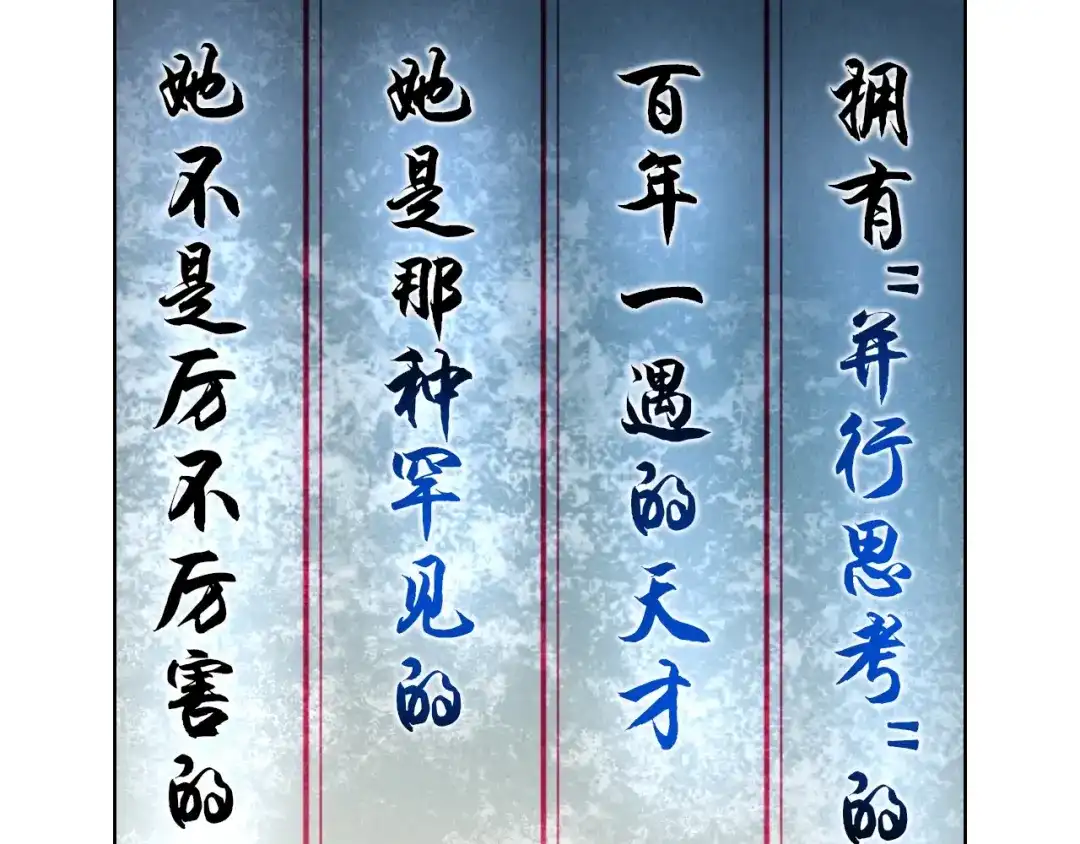 她不是厉不厉害的
她是那种罕见的
百年一遇的天才
拥有"并行思考"的